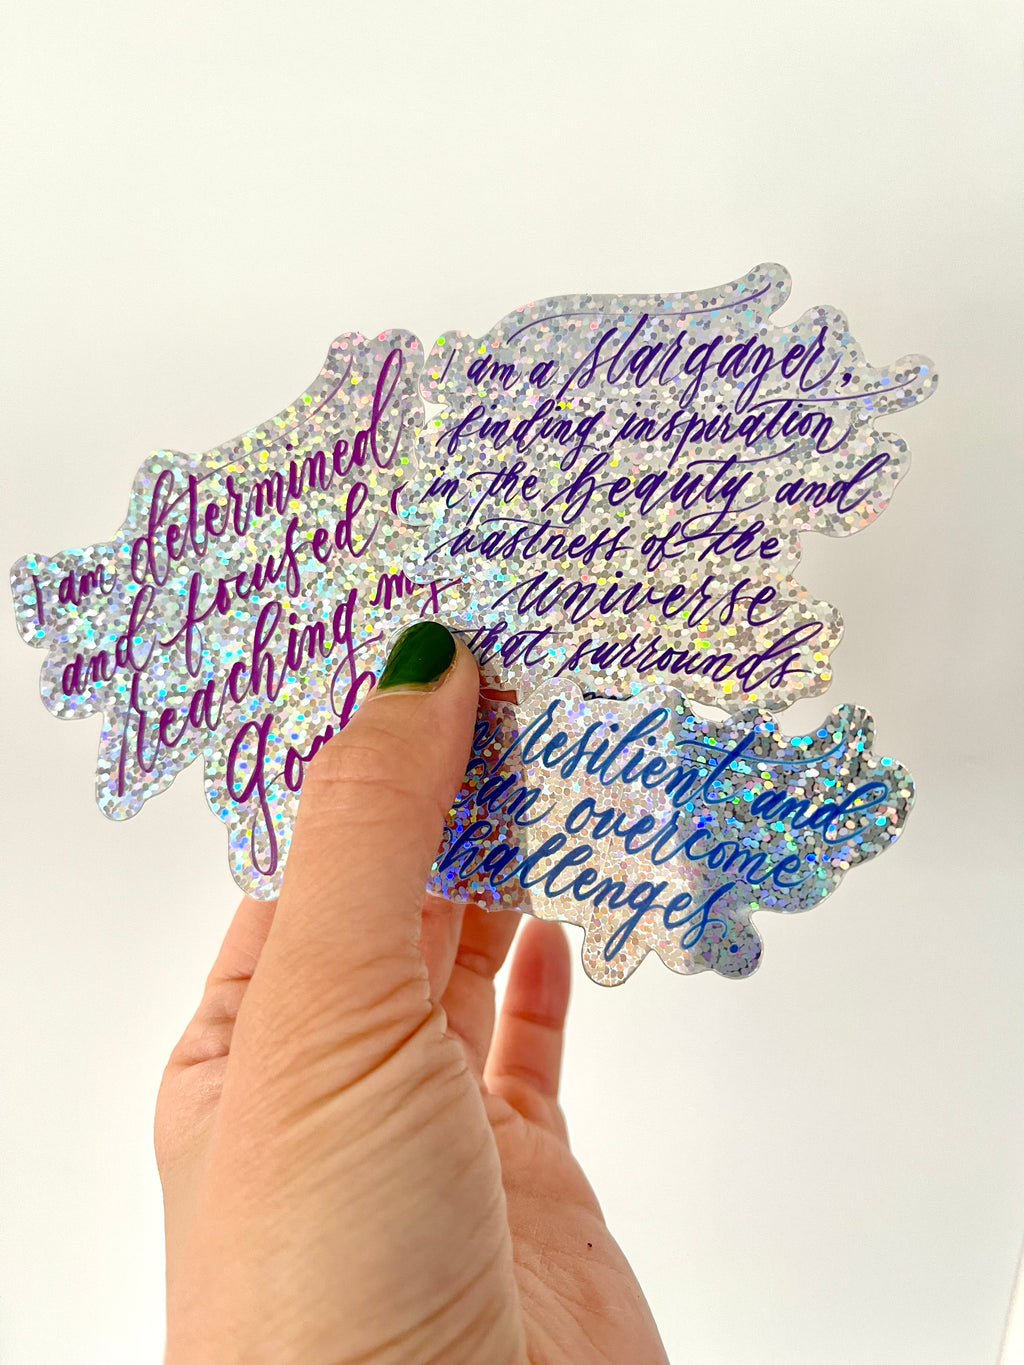 I am determined
and focused
reaching my
I am a stargazer,
finding inspiration
in the beauty and
vastness of the
universe
that surrounds
resilient and
can overcome
challenges.